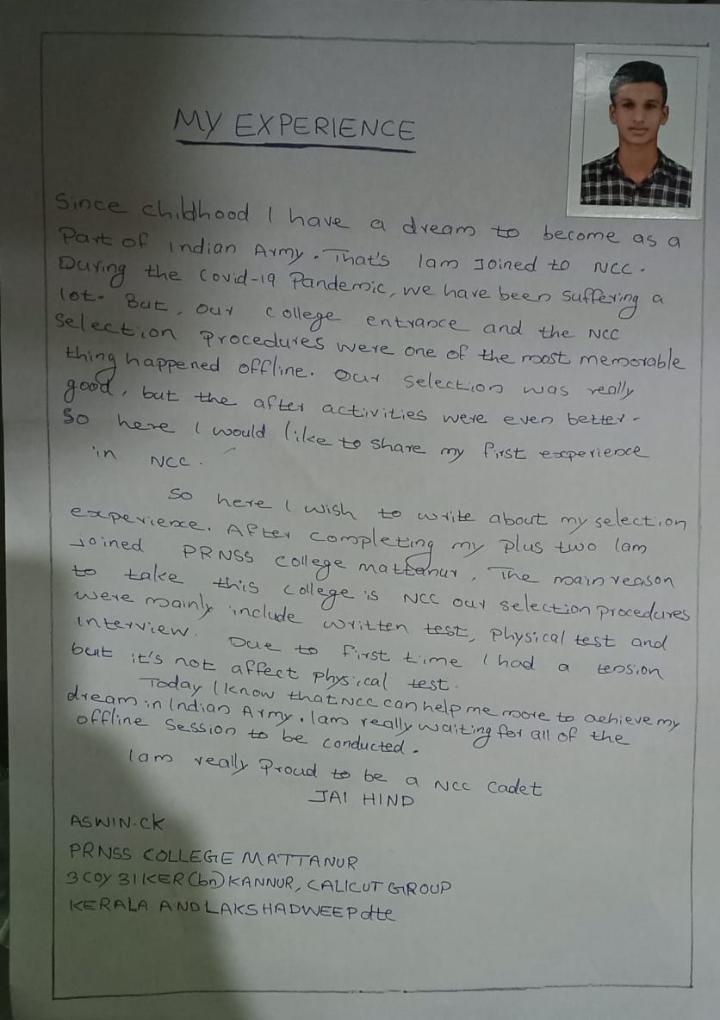 MY EXPERIENCE
Since childhood I have a dream to become as a
Part of Indian Army. That's Iam Joined to NCC.
During the Covid-19 Pandemic, we have been suffering a
lot. But, our college entrance and the NCC
selection Procedures were one of the most memorable
thing happened offline. Our selection was really
good, but the after activities were even better.
So here I would like to share my first experience
in NCC.
So here I wish to write about my selection
experience. After completing my Plus two Iam
joined PRNSS college mattanur, The main reason
to take this college is NCC our selection procedures
were mainly include written test, physical test and
interview. Due to first time I had a tension
but it's not affect physical test.
Today I know that NCC can help me more to achieve my
dream in Indian Army. Iam really waiting for all of the
offline session to be conducted.
Iam really Proud to be a NCC Cadet
JAI HIND
ASWIN.CK
PRNSS COLLEGE MATTANUR
3 COY 31 KER (bn) KANNUR, CALICUT GROUP
KERALA AND LAKSHADWEEP dte